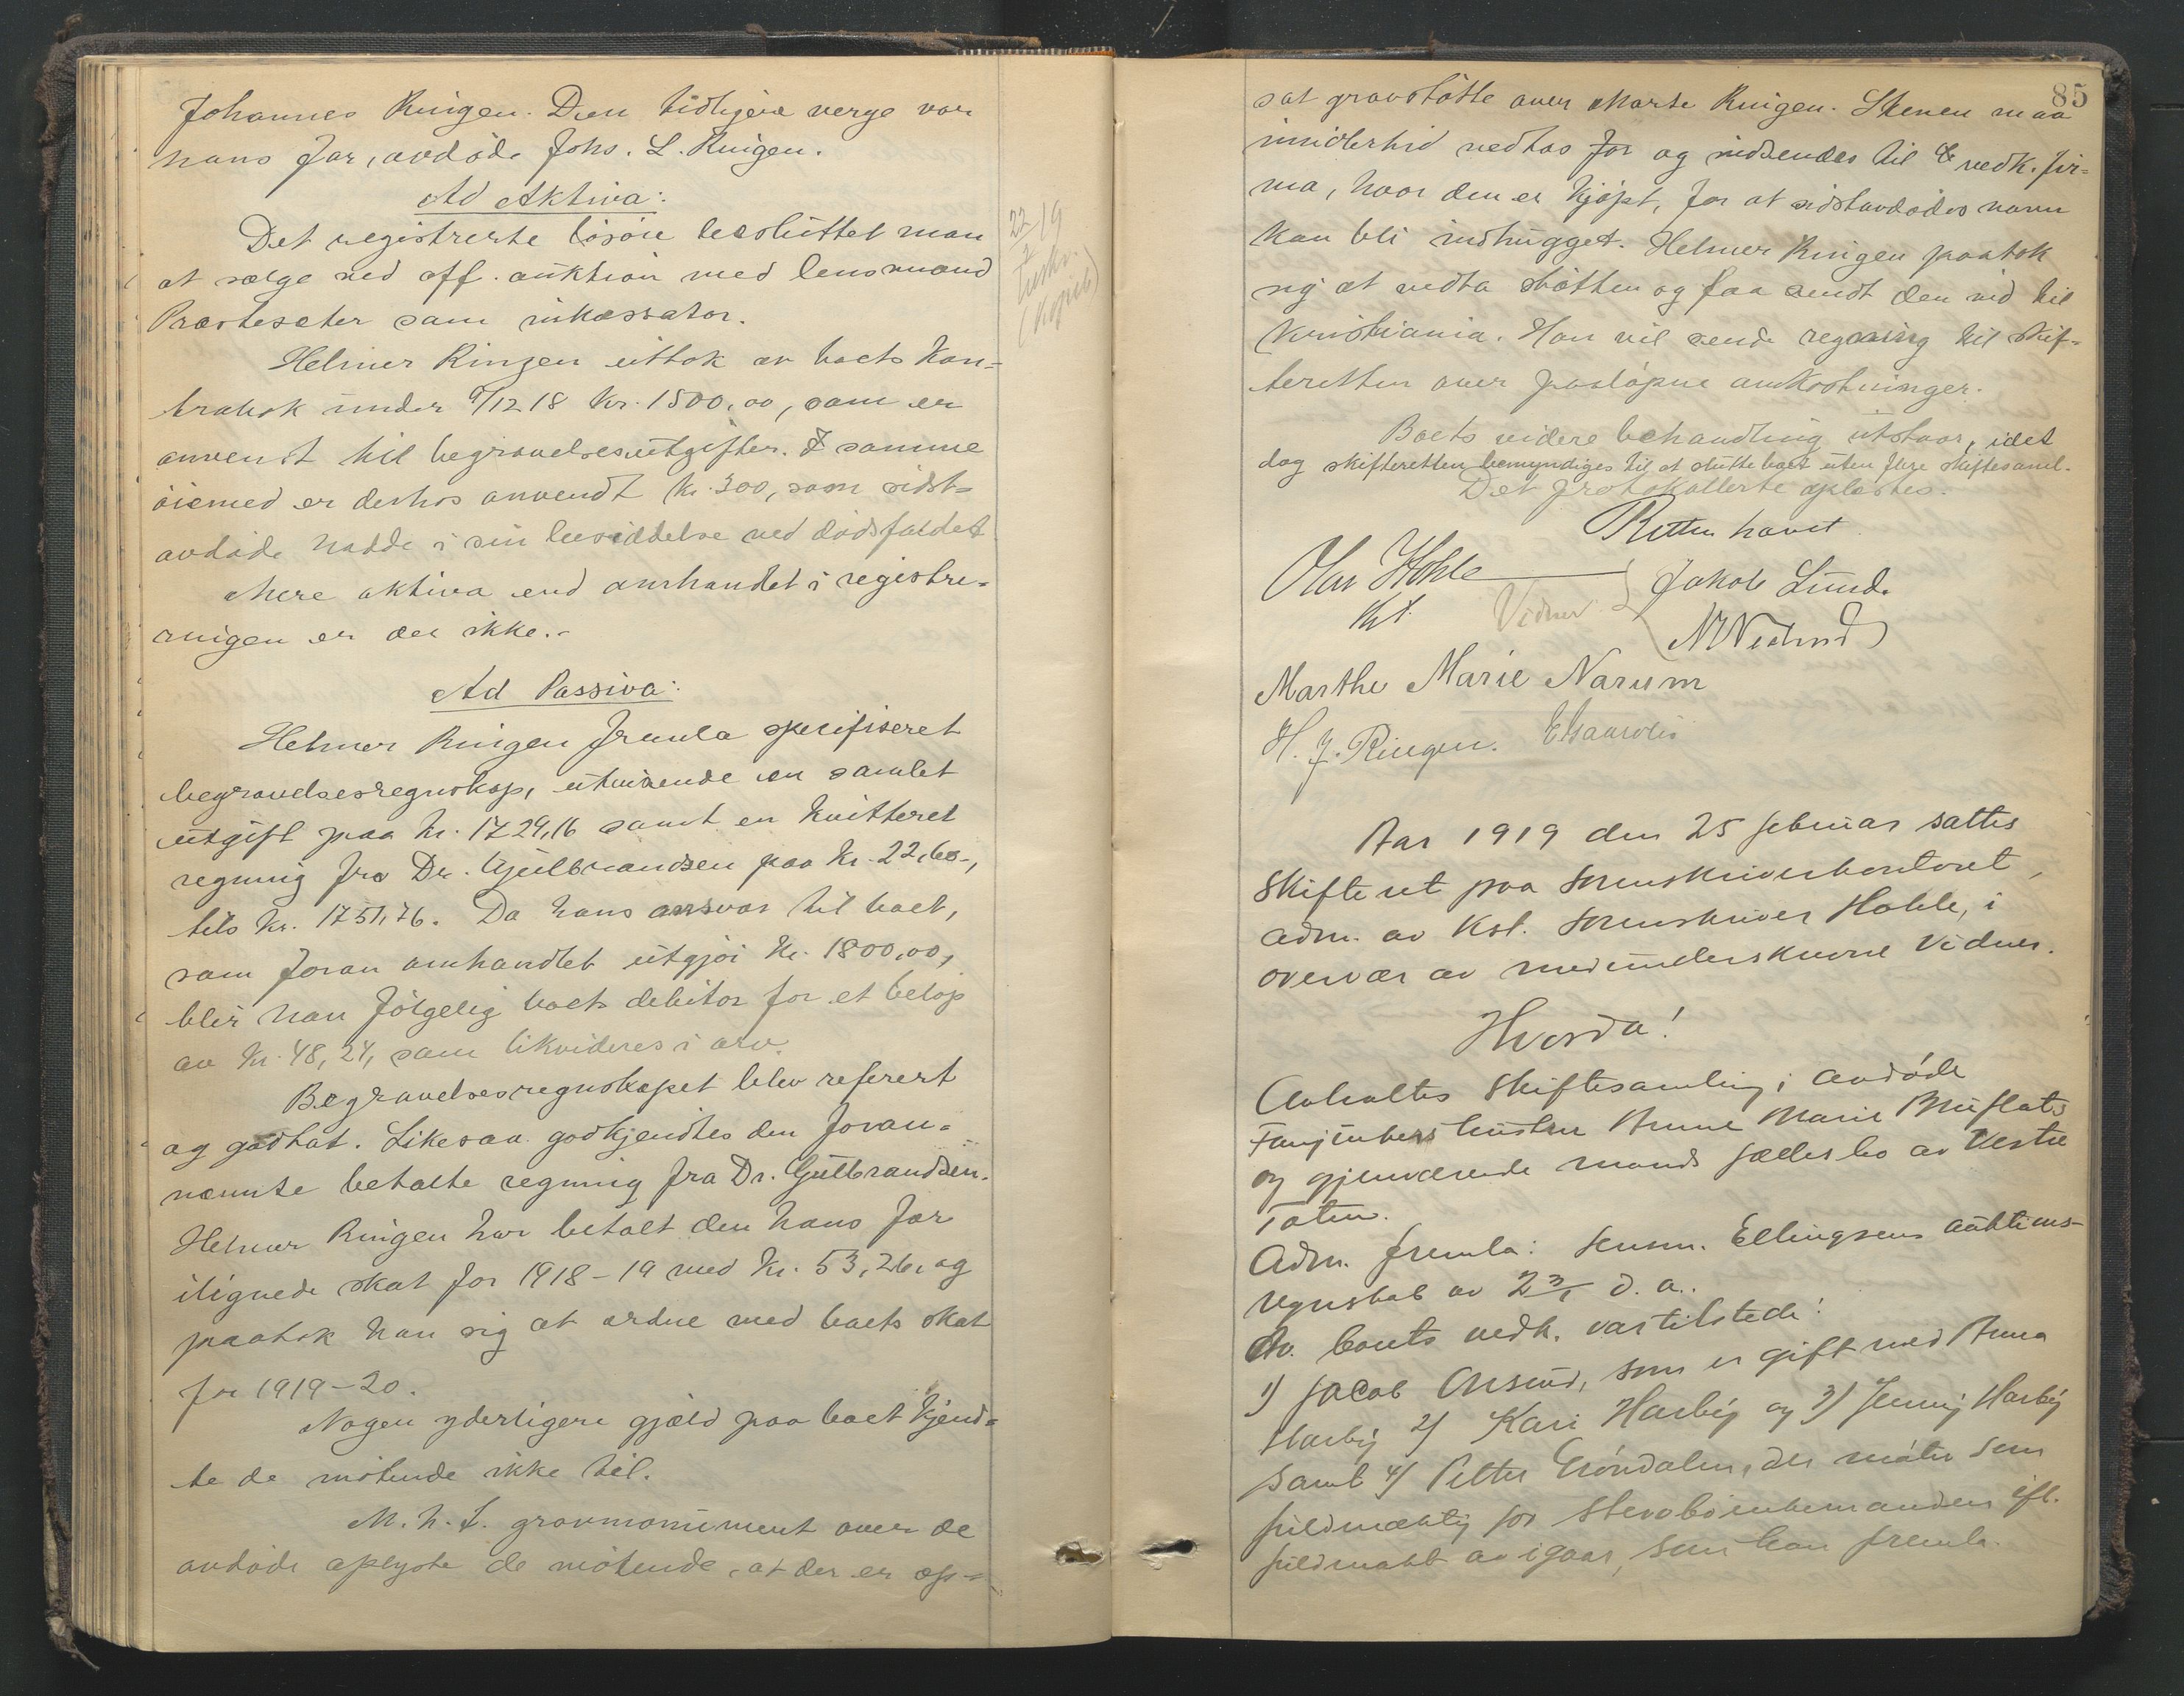 Johannes Ringen. Den tidligere verge var
hans far, avdøde Johs. L. Ringen.
Ad Aktiva:
Det registrerte løsøre besluttet man
at sælge ved off. auktion med lensmand
Præsteseter som inkassator.
Helmer Ringen uttok av boets kon-
trabok under 9/12 18 kr. 1500,00, som er
anvendt til begravelsesutgifter. I samme
øiemed er derhos anvendt kr. 300, som sidst-
avdøde hadde i sin besiddelse ved dødsfaldet
Mere aktiva end omhandlet i registre-
ringen er der ikke.-
Ad Passiva:
Helmer Ringen fremla spesifiseret
begravelsesregnskap, utvisende en samlet
utgift paa kr. 1729,16 samt en kvitteret
regning fra Dr. Gulbrandsen paa kr. 22,60-,
tils kr. 1751,76. Da hans ansvar til boet,
som foran omhandlet utgjør kr. 1800,00,
blir han følgelig boets debitor for et beløp
av kr. 48,24, som likvideres i arv.
Begravelsesregnskapet blev referert
og godtat. Likesaa godkjendtes den foran-
nævnte betalte regning fra Dr. Gulbrandsen.
Helmer Ringen har betalt den hans far
ilignede skat for 1918-19 med kr. 53,26, og
paatok han sig at ordne med boets skat
for 1919-20.
Nogen yderligere gjæld paa boet kjend-
te de møtende ikke til.
M.h.t. gravmonument over de
avdøde oplyste de møtende, at der er op-
22/2 19
(kopieb)
85
sat gravstøtte over Marte Ringen. Stenen maa
imidlertid nedtas for og nedsendes til vedk. fir-
ma, hvor den er kjøpt, for at sidstavdødes navn
kan bli indhugget. Helmer Ringen paatok
sig at nedta støtten og faa sendt den ned til
Kristiania. Han vil sende regning til skif-
teretten over paaløpne omkostninger.
Boets videre behandling utstaar, idet
dog skifteretten bemyndiges til at slutte boet uten flere skiftesaml.
Det protokollerte oplæstes.
Retten hævet
Olav Hohle
Kst.
Vidner
Jakob Lund.
Marthe Marie Narum
H. J. Ringen.
Aar 1919 den 25 februar sattes
skifteret paa sorenskriverkontoret,
adm. av Kst. sorenskriver Hohle, i
overvær av medunderskrevne vidner.
Hvorda!
Avholdtes Skiftesamling i avdøde
hustru Anne Marie Bruflats
og gjenværende mands fællesbo av Vestre
Toten.
Adm. fremla: lensm. Ellingsens auktions-
regnskab av 23/1 d. a..
Av boets vedk. var tilstede:
1) Jacob Onsrud, som er gift med Anna
Harby 2) Kari Harby og 3) Jenny Harby
samt 4) Petter Grøndalen, der møter som
fuldmægtig for ifl.
fuldmakt av igaar, som han fremla.